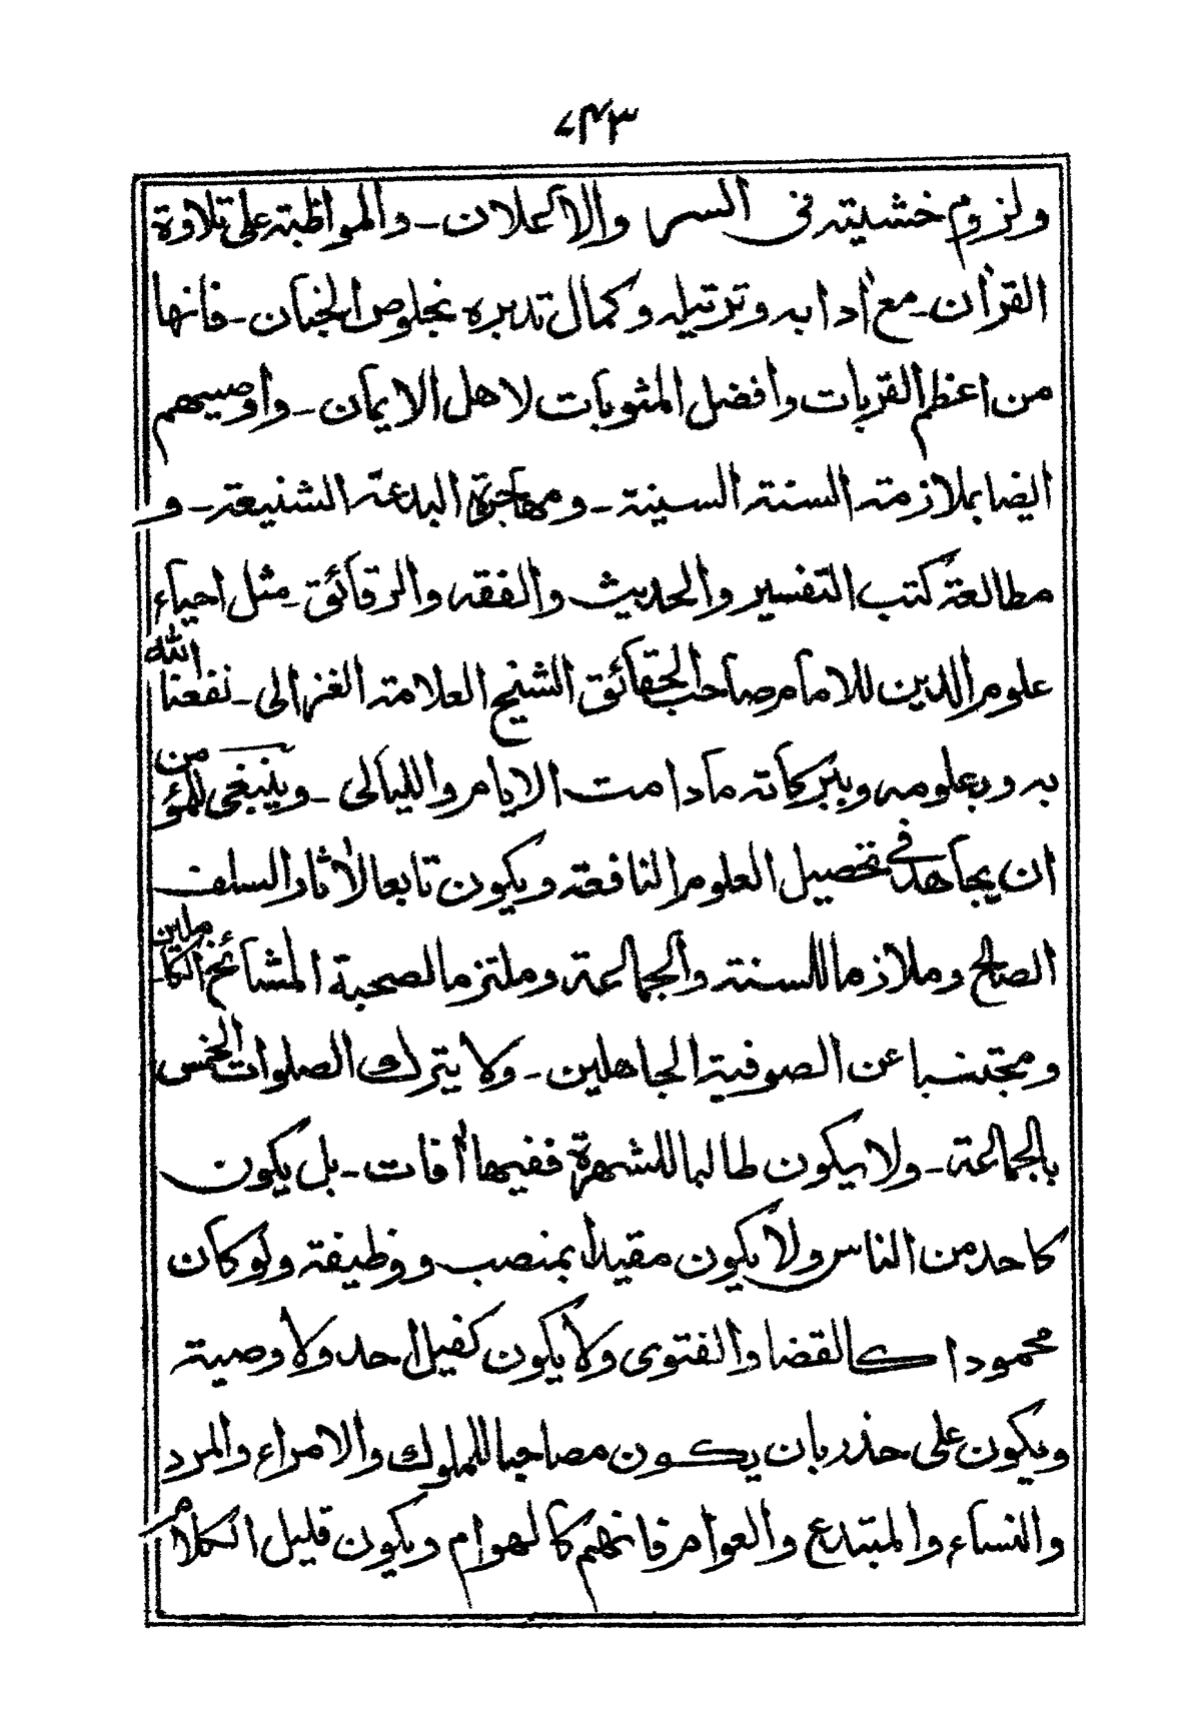 ٧٤٣
ولزوم خشيته فى السر والاعلان ـ والمواظبة على تلاوة
القرآن ـ مع آدابه وترتيله وكمال تدبره بخلوص الجنان ـ فانها
من اعظم القربات وافضل المثوبات لاهل الايمان ـ واوصيهم
ايضا بملازمته السنته السينة ـ ومهاجرة البدعة الشنيعة ـ و
مطالعة كتب التفسير والحديث والفقه والرقائق ـ مثل احياء
علوم الدين للامام صاحب الحقائق الشيخ العلامة الغزالى ـ نفعنا الله
به وبعلومه وببركاته مادامت الايام والليالى ـ وينبغى للمؤمن
ان يجاهد فى تحصيل العلوم النافعة ويكون تابعا لآثار السلف
الصالح وملازما للسنته والجماعة وملتزما لصحبة المشائخ الكاملين
ومجتنبا عن الصوفية الجاهلين ـ ولا يترك الصلوات الخمس
بالجماعة ـ ولا يكون طالبا للشهرة ففيها آفات ـ بل يكون
كاحد من الناس ولا يكون مقيدا بمنصب ووظيفة ولو كان
محمودا كالقضا والفتوى ولا يكون كفيل احد ولا وصيته
ويكون على حذر بان يكون مصاحبا للملوك والامراء والمرد
والنساء والمبتدع والعوام فانهم كالهوام ويكون قليل الكلام